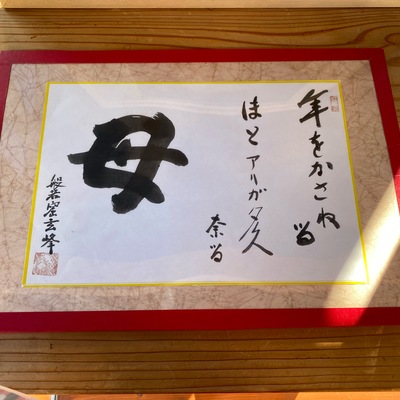 年をかさねる
ほとアリガ多久
奈る
母
般若窟玄峰